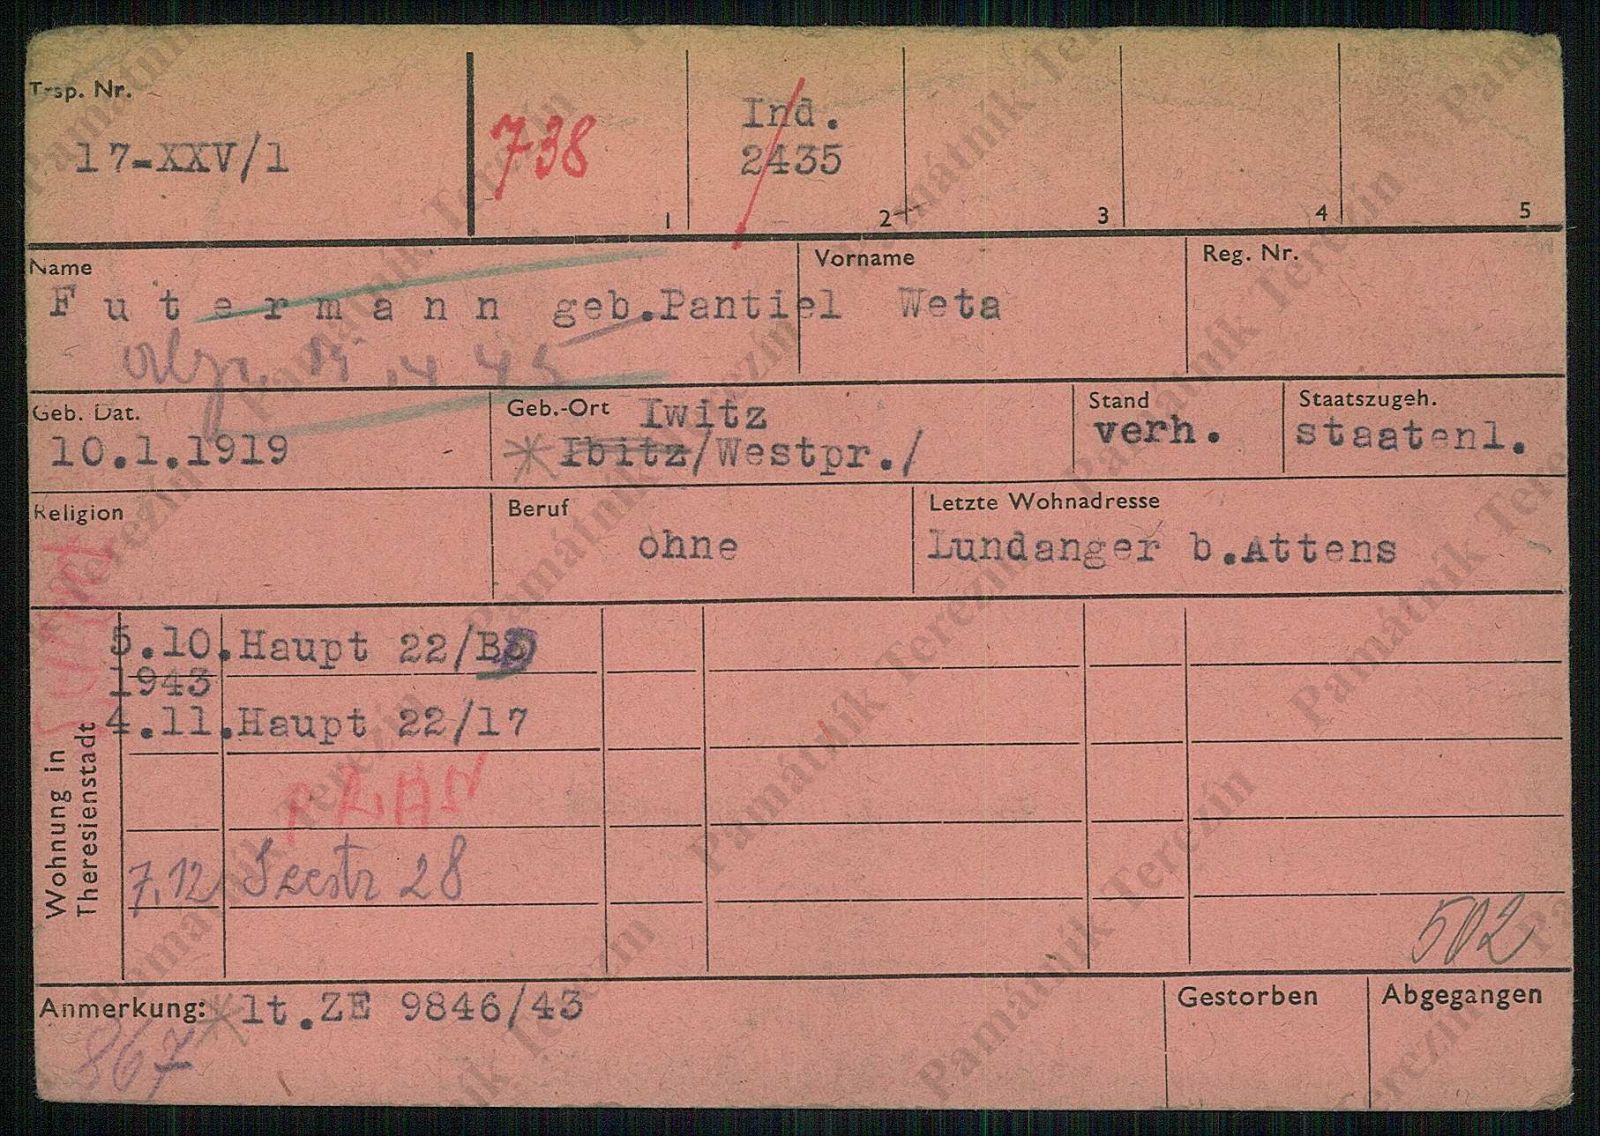 Trsp. Nr.
17-XXV/1
738
Ind.
2435
1 2 3 4 5
Name Vorname Reg. Nr.
Futermann geb. Pantiel Weta
Geb. Dat. Geb.-Ort Stand Staatszugeh.
Iwitz
10.1.1919 * Ibitz/Westpr./ verh. staatenl.
Religion Beruf Letzte Wohnadresse
ohne Lundanger b.Attens
5.10. Haupt 22/
1943
4.11. Haupt 22/17
7.12 Seestr 28
Wohnung in
Theresienstadt
502
Anmerkung: * lt.ZE 9846/43 Gestorben Abgegangen
867
Památník Terezín